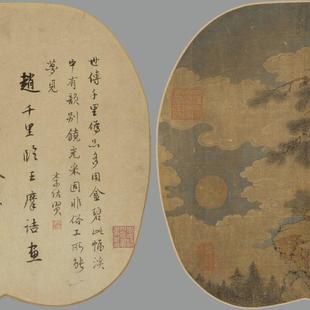 世傳千里傅色多用金碧此幅淡
中有韻別饒光采固非俗工所能
夢見
李佐賢
趙千里臨王摩詰畫